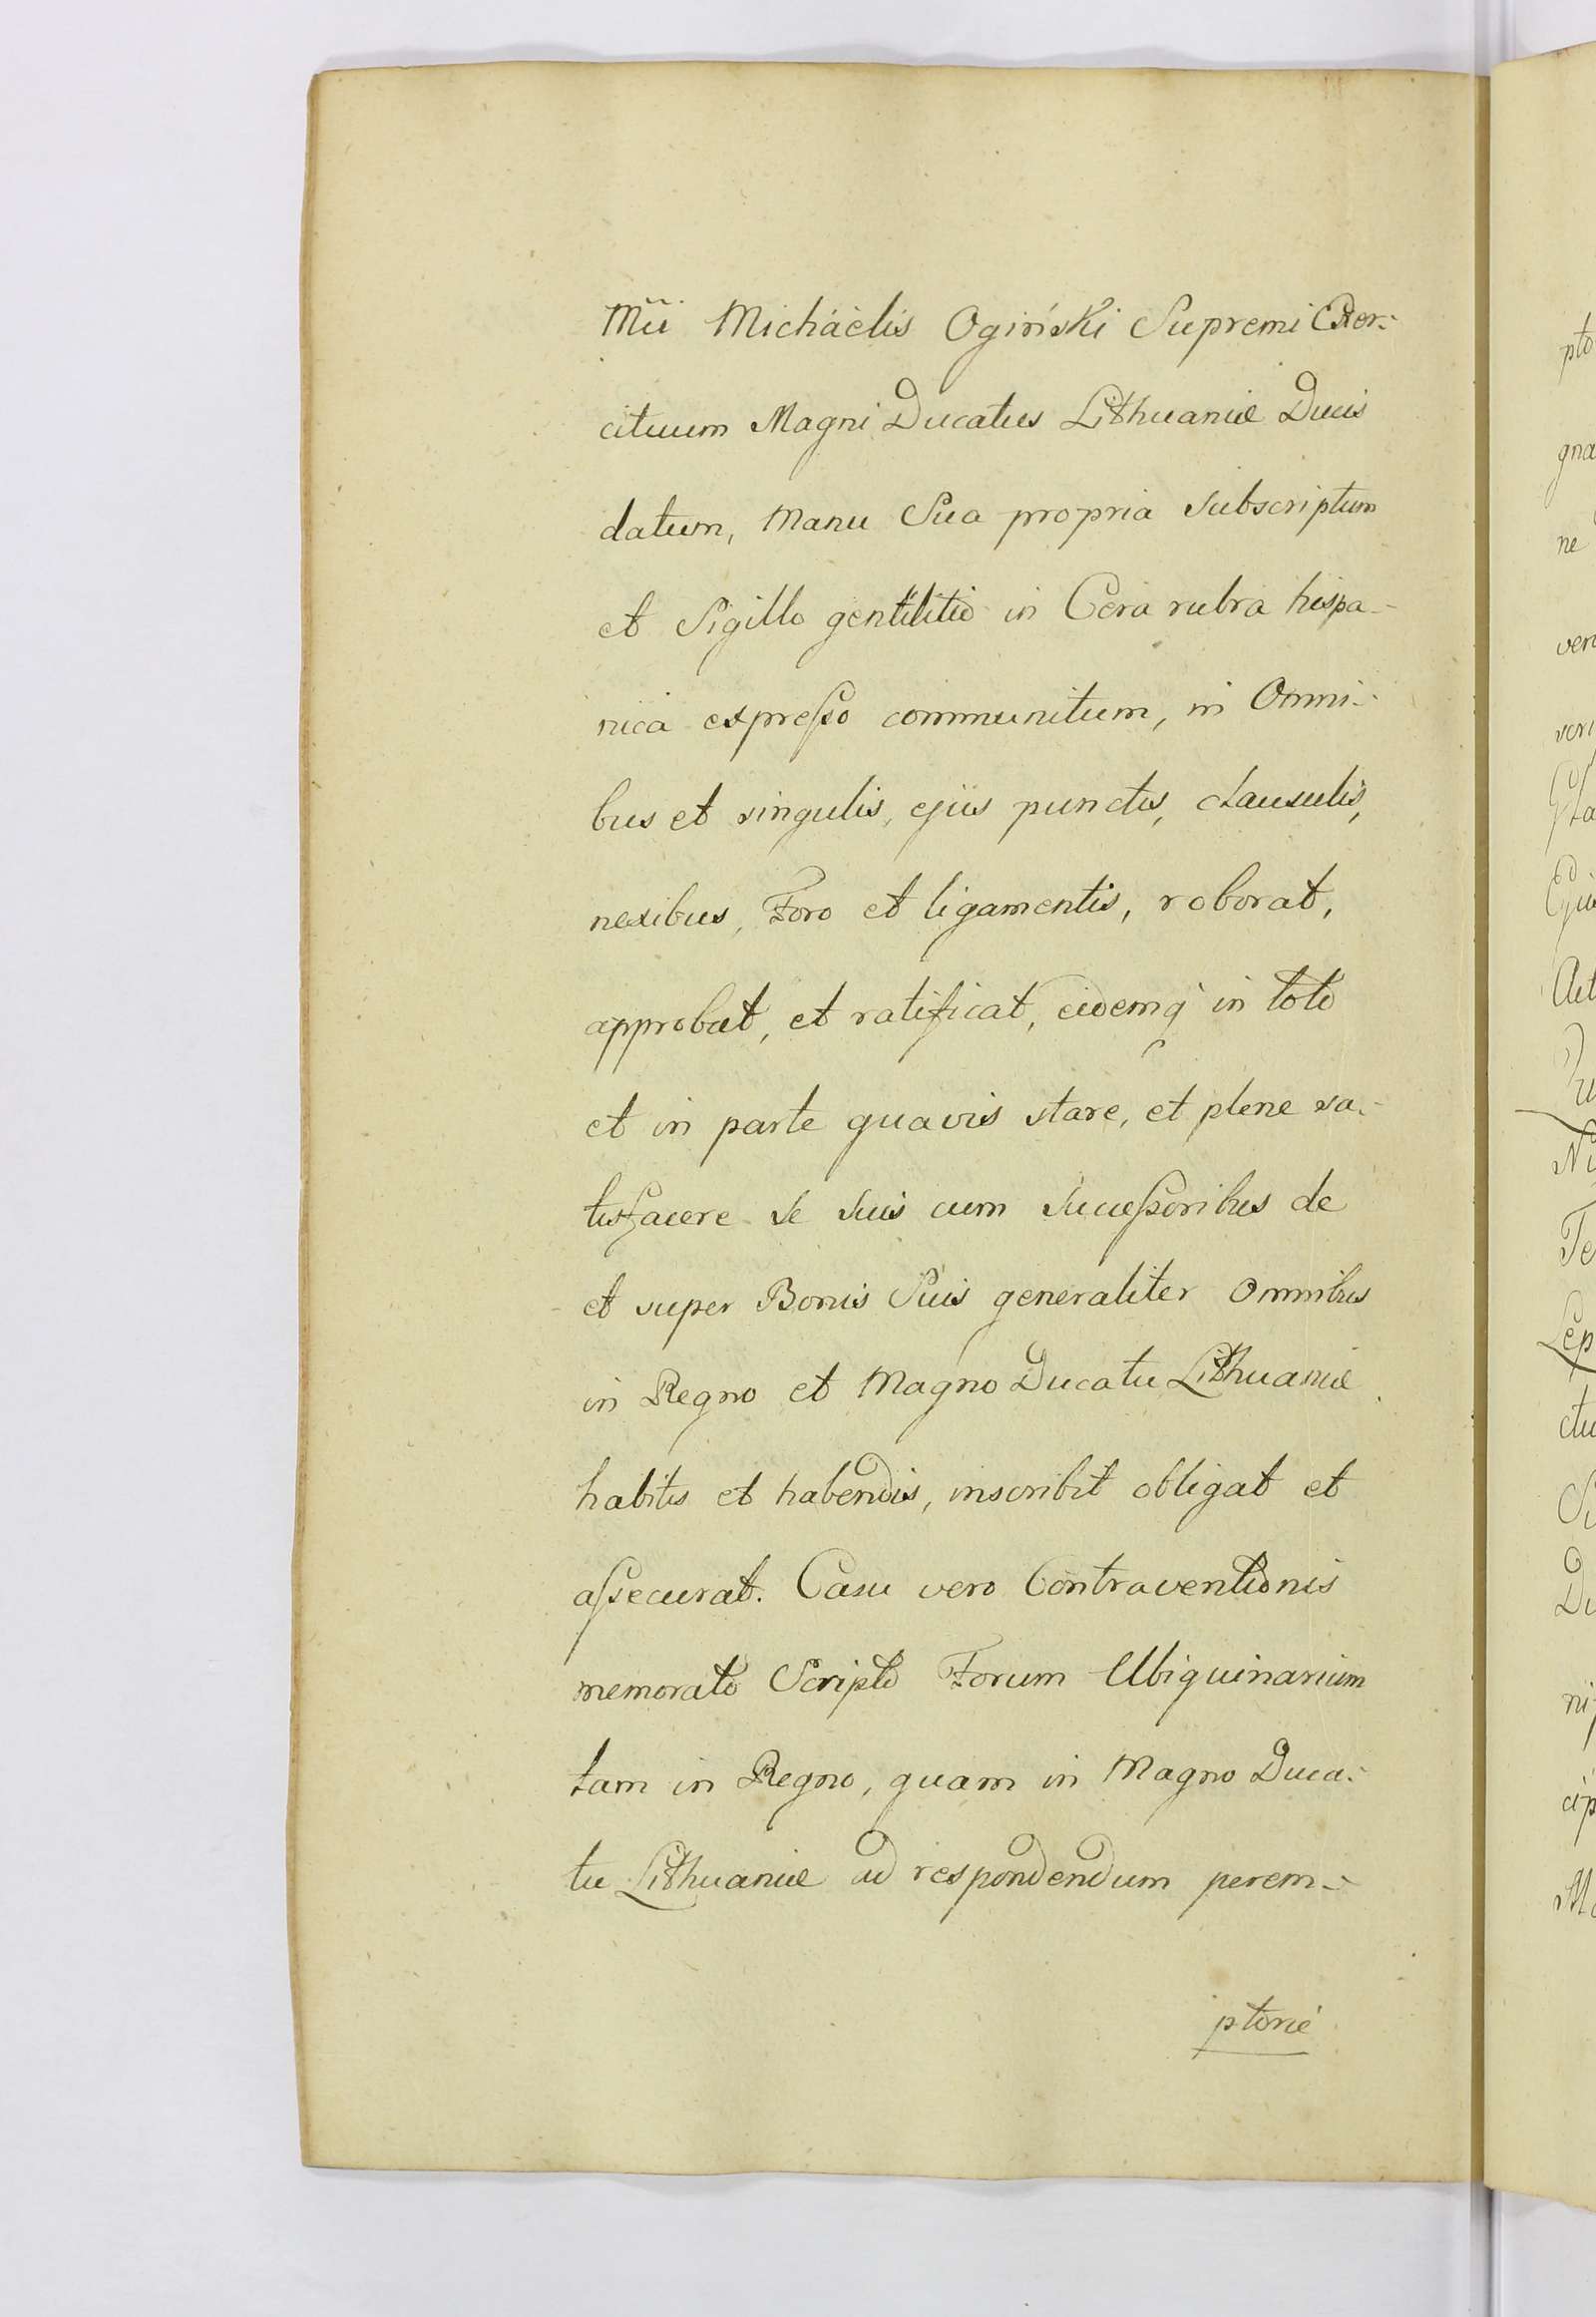 Mĩi Michaëlis Ogiński Supremi Exer-
cituum Magni Ducatus Lithuaniæ Ducis
datum, Manu Sua propria subscriptum
et Sigillo gentilitio in Cera rubra hispa-
nica expreſso communitum, in Omni-
bus et singulis, ejus punctis, clausulis,
nexibus, Foro et ligamentis, roborat,
approbat, et ratificat, eidemq́ in toto
et in parte quavis stare, et plene sa-
tisfacere se suis cum Succeſsoribus de
et super Bonis Suis generaliter Omnibus
in Regno et Magno Ducatu Lithuaniæ
habitis et habendis, inscribit obligat et
aſsecurat. Casu vero Contraventionis
memorato Scripto Forum Ubiquinarium
tam in Regno, quam in Magno Duca-
tu Lithuaniæ ad respondendum perem-
ptorié